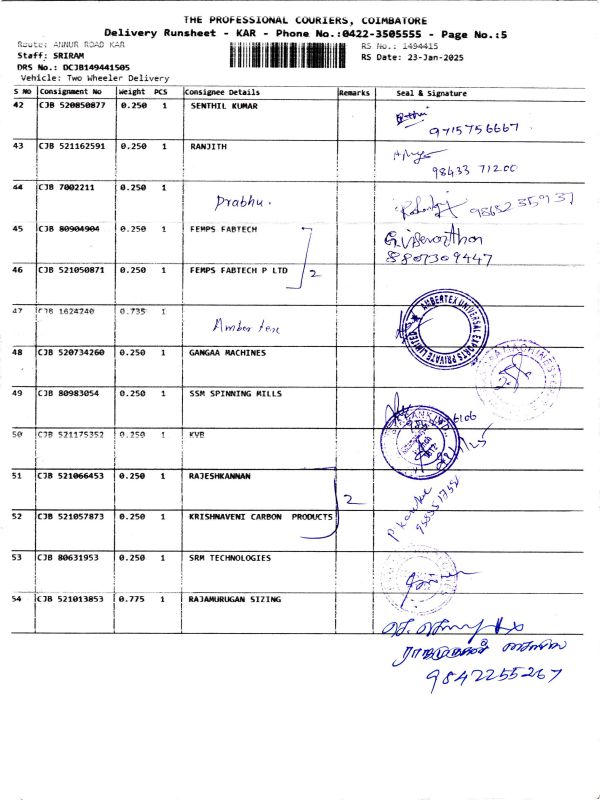 THE PROFESSIONAL COURIERS, COIMBATORE
Delivery Runsheet - KAR - Phone No.:0422-3505555 - Page No.:5
Route: ANNUR ROAD KAR
RS No.: 1494415
Staff: SRIRAM
RS Date: 23-Jan-2025
DRS No.: DCJB149441505
Vehicle: Two Wheeler Delivery
S NO Consignment No Weight PCS Consignee Details Remarks Seal & Signature
42 CJB 520850877 0.250 1 SENTHIL KUMAR
9715756667
43 CJB 521162591 0.250 1 RANJITH
98433 71200
44 CJB 7002211 0.250 1
Prabhu.
45 CJB 80904904 0.250 1 FEMPS FABTECH
8807309447
46 CJB 521050871 0.250 1 FEMPS FABTECH P LTD 2
47 CJB 1624240 0.735 1
Amber tex
AMBERTEX UNIVERSAL EXPORTS PRIVATE LIMITED
48 CJB 520734260 0.250 1 GANGAA MACHINES
49 CJB 80983054 0.250 1 SSM SPINNING MILLS
50 CJB 521175352 0.250 1 KVB
51 CJB 521066453 0.250 1 RAJESHKANNAN
2
52 CJB 521057873 0.250 1 KRISHNAVENI CARBON PRODUCTS
53 CJB 80631953 0.250 1 SRM TECHNOLOGIES
54 CJB 521013853 0.775 1 RAJAMURUGAN SIZING
9842255267